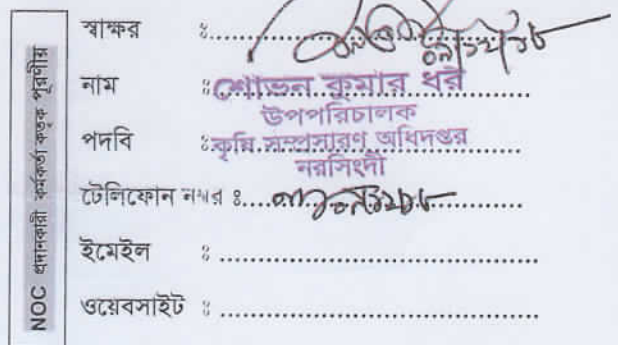 NOC প্রদানকারী কর্মকর্তা কর্তৃক পূরণীয়
স্বাক্ষর ঃ
নাম ঃ শোভন কুমার ধর
উপপরিচালক
পদবি ঃ কৃষি সম্প্রসারণ অধিদপ্তর
নরসিংদী
টেলিফোন নম্বর ঃ
ইমেইল ঃ
ওয়েবসাইট ঃ